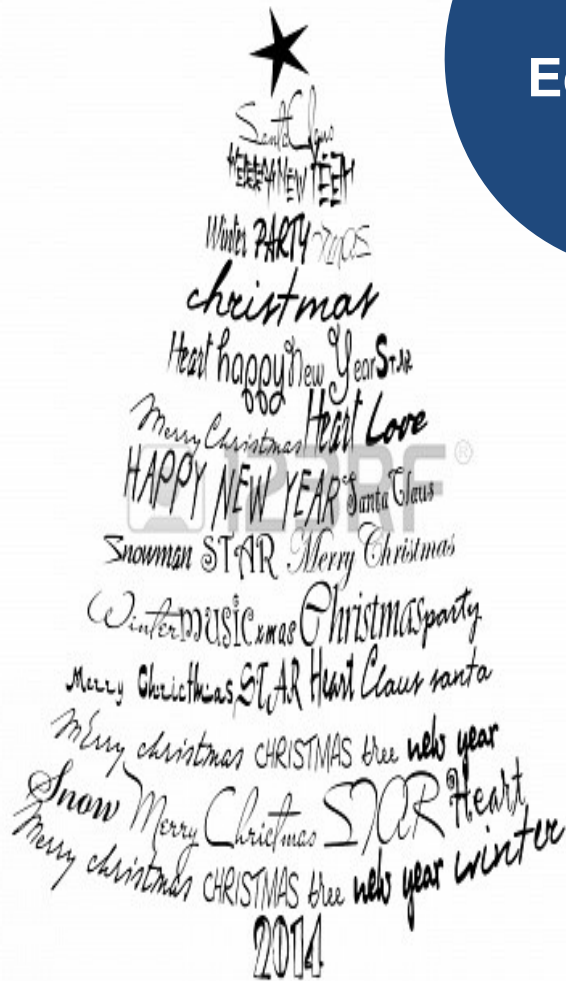 Santa Claus
NEW YEAR
Winter PARTY xmas
christmas
Heart happy New Year STAR
Merry Christmas Heart Love
HAPPY NEW YEAR Santa Claus
123RF®
Snowman STAR Merry Christmas
Winter MUSIC xmas Christmas party
Merry Chricthcas STAR Heart Claus santa
Merry christmas CHRISTMAS tree new year
Snow Merry Chrictmas STAR Heart
Merry christmas CHRISTMAS tree new year winter
2014